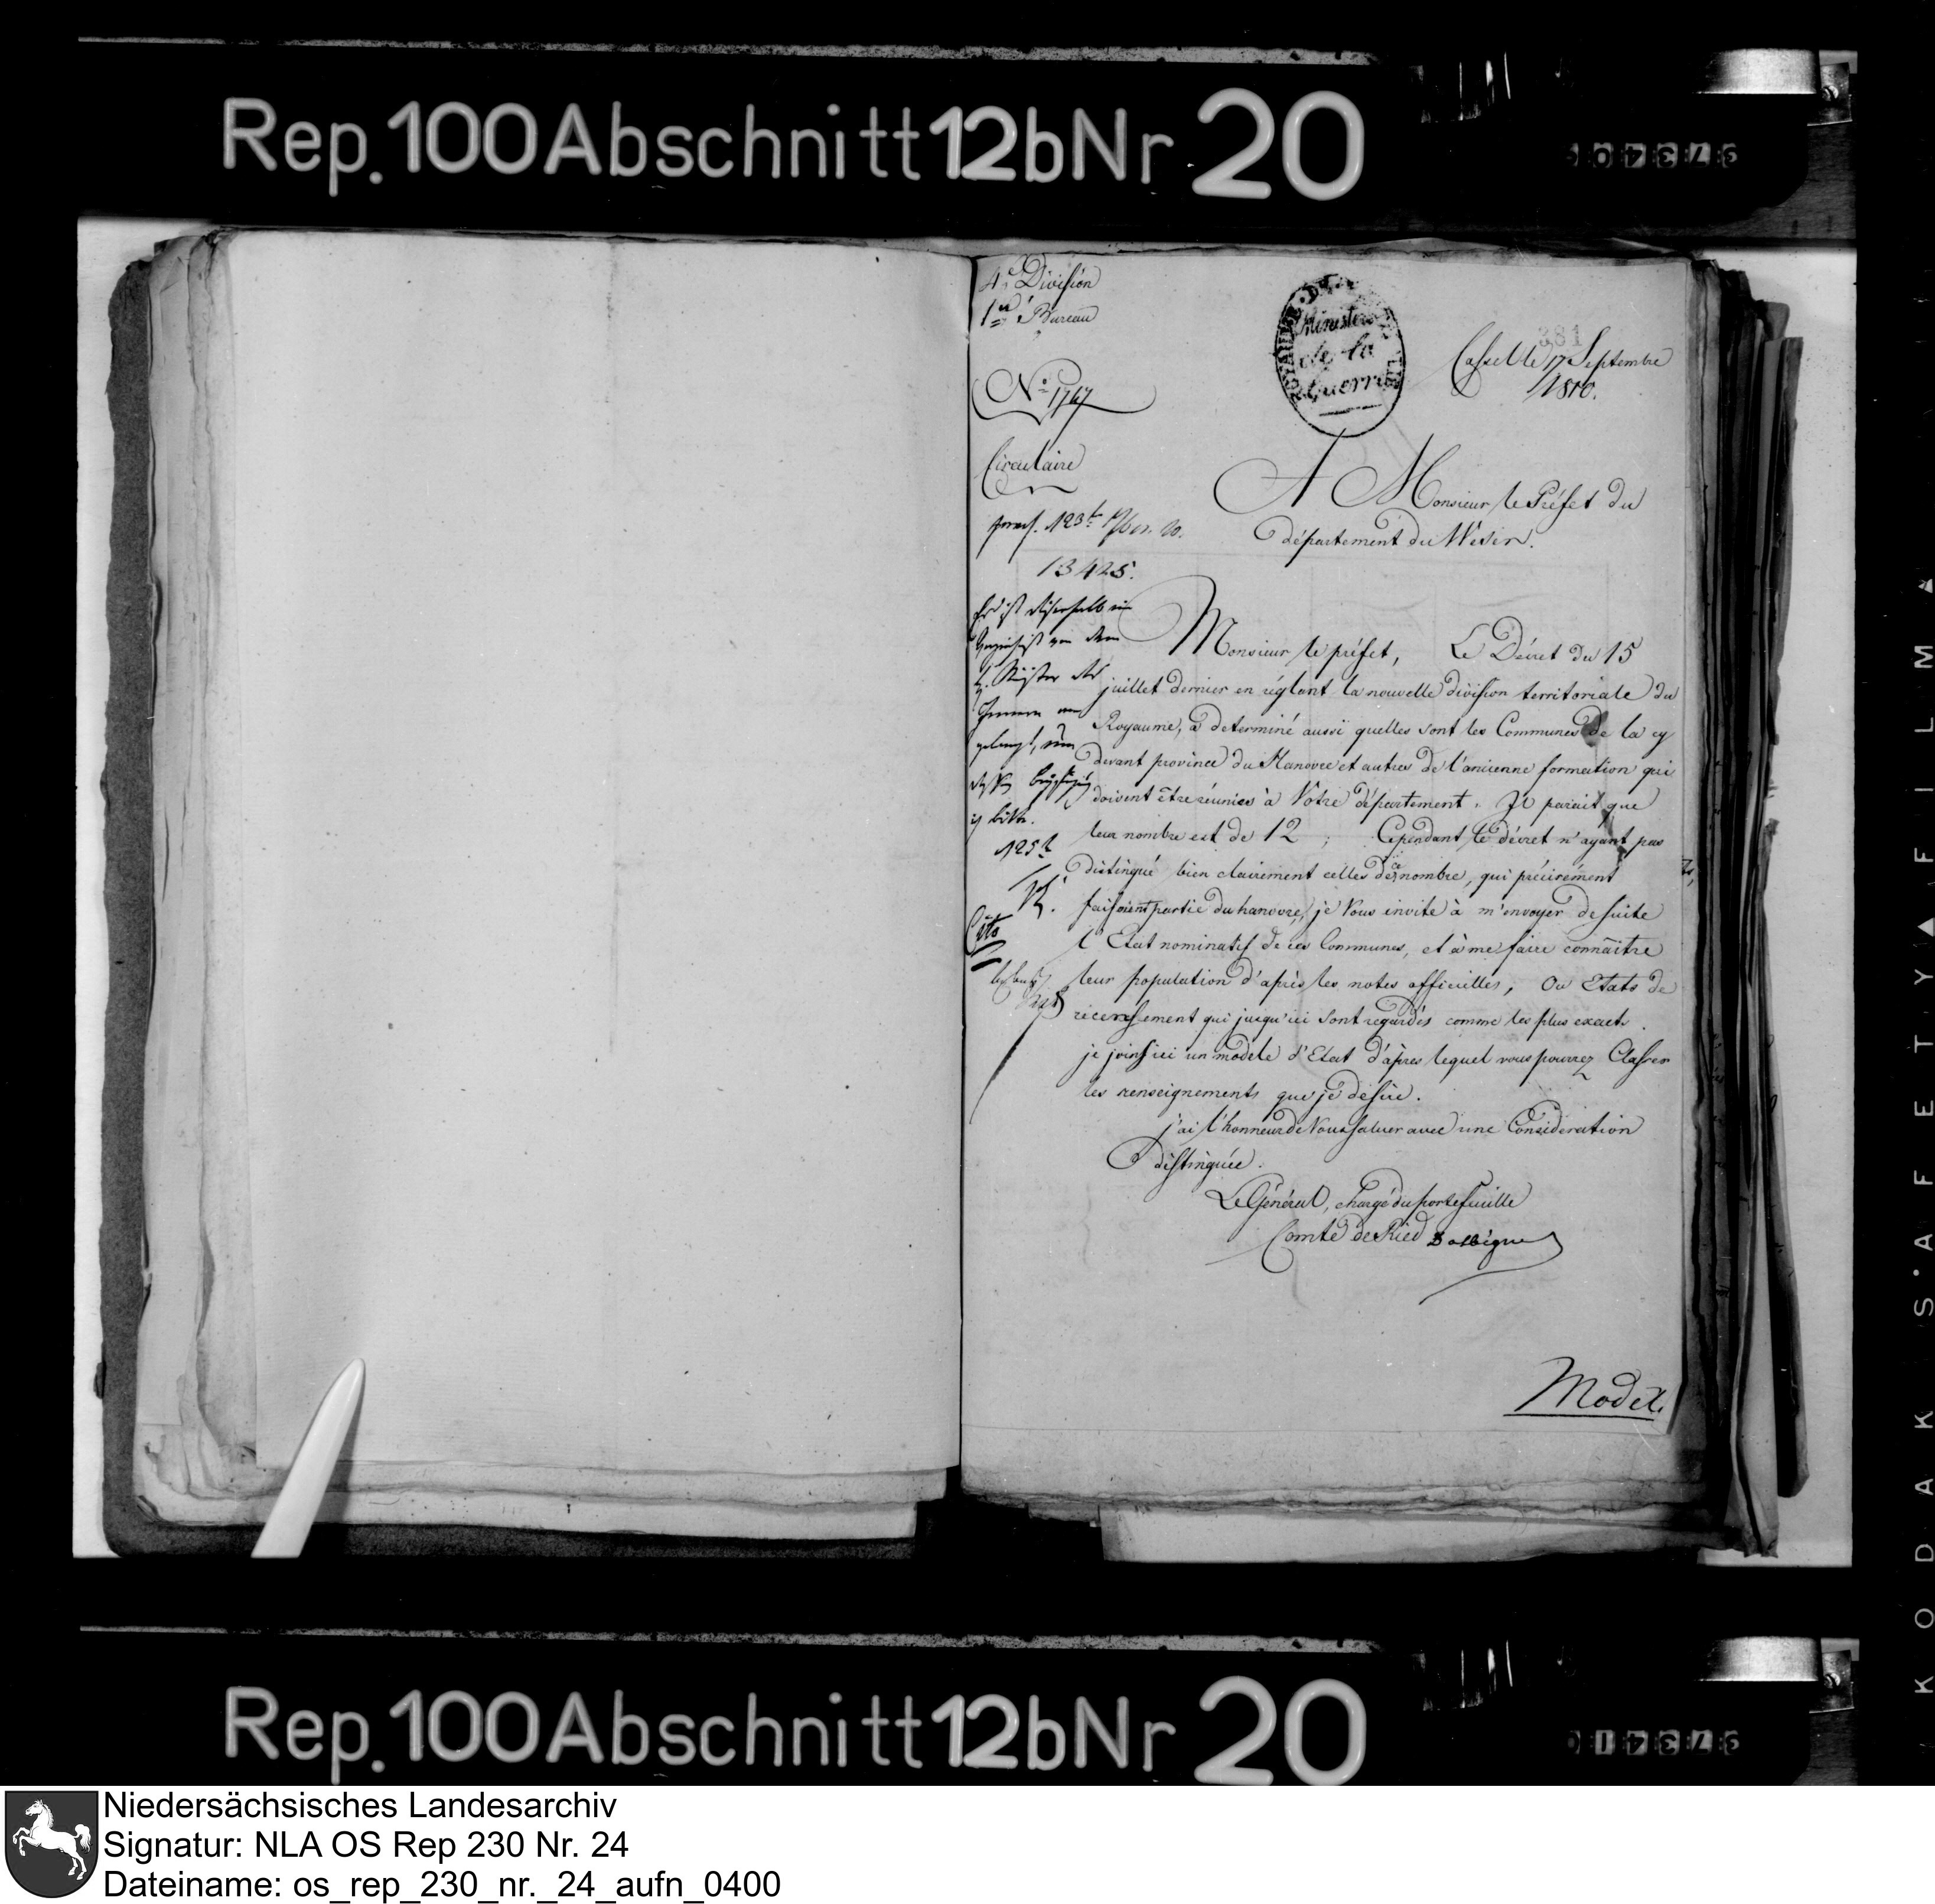 Rep. 100 Abschnitt 12b Nr 20
4e Division
1er Bureau
Ministère
de la
Guerre
381
Cassel le 17 Septembre
1810.
No. 1767
Circulaire
A Monsieur le Préfet du
département du Wéser.
13425.
Monsieur le préfet, Le Décret du 15
juillet dernier en réglant la nouvelle division territoriale du
Royaume, a determiné aussi quelles sont les Communes de la cy
devant province du Hanovre et autres de l'ancienne formation qui
doivent être réunies à Vôtre département. Il parait que
leur nombre est de 12 ; Cependant le décret n'ayant pas
distingué bien clairement celles de ce nombre, qui précisément
faisoient partie du hanovre, je Vous invite à m'envoyer de suite
l'Etat nominatif de ces Communes, et à me faire connaitre
leur population d'après les notes officielles, Ou Etats de
recensement qui jusqu'ici sont regardés comme les plus exacts.
je joins ici un modèle d'Etat d'après lequel vous pourrez Classer
les renseignements que je désire.
j'ai l'honneur de Vous saluer avec une Considération
distinguée.
Le Général, chargé du portefeuille
Comte de
Cito
Model.
Rep. 100 Abschnitt 12b Nr 20
KODAK SAFETY FILM
Niedersächsisches Landesarchiv
Signatur: NLA OS Rep 230 Nr. 24
Dateiname: os_rep_230_nr._24_aufn_0400